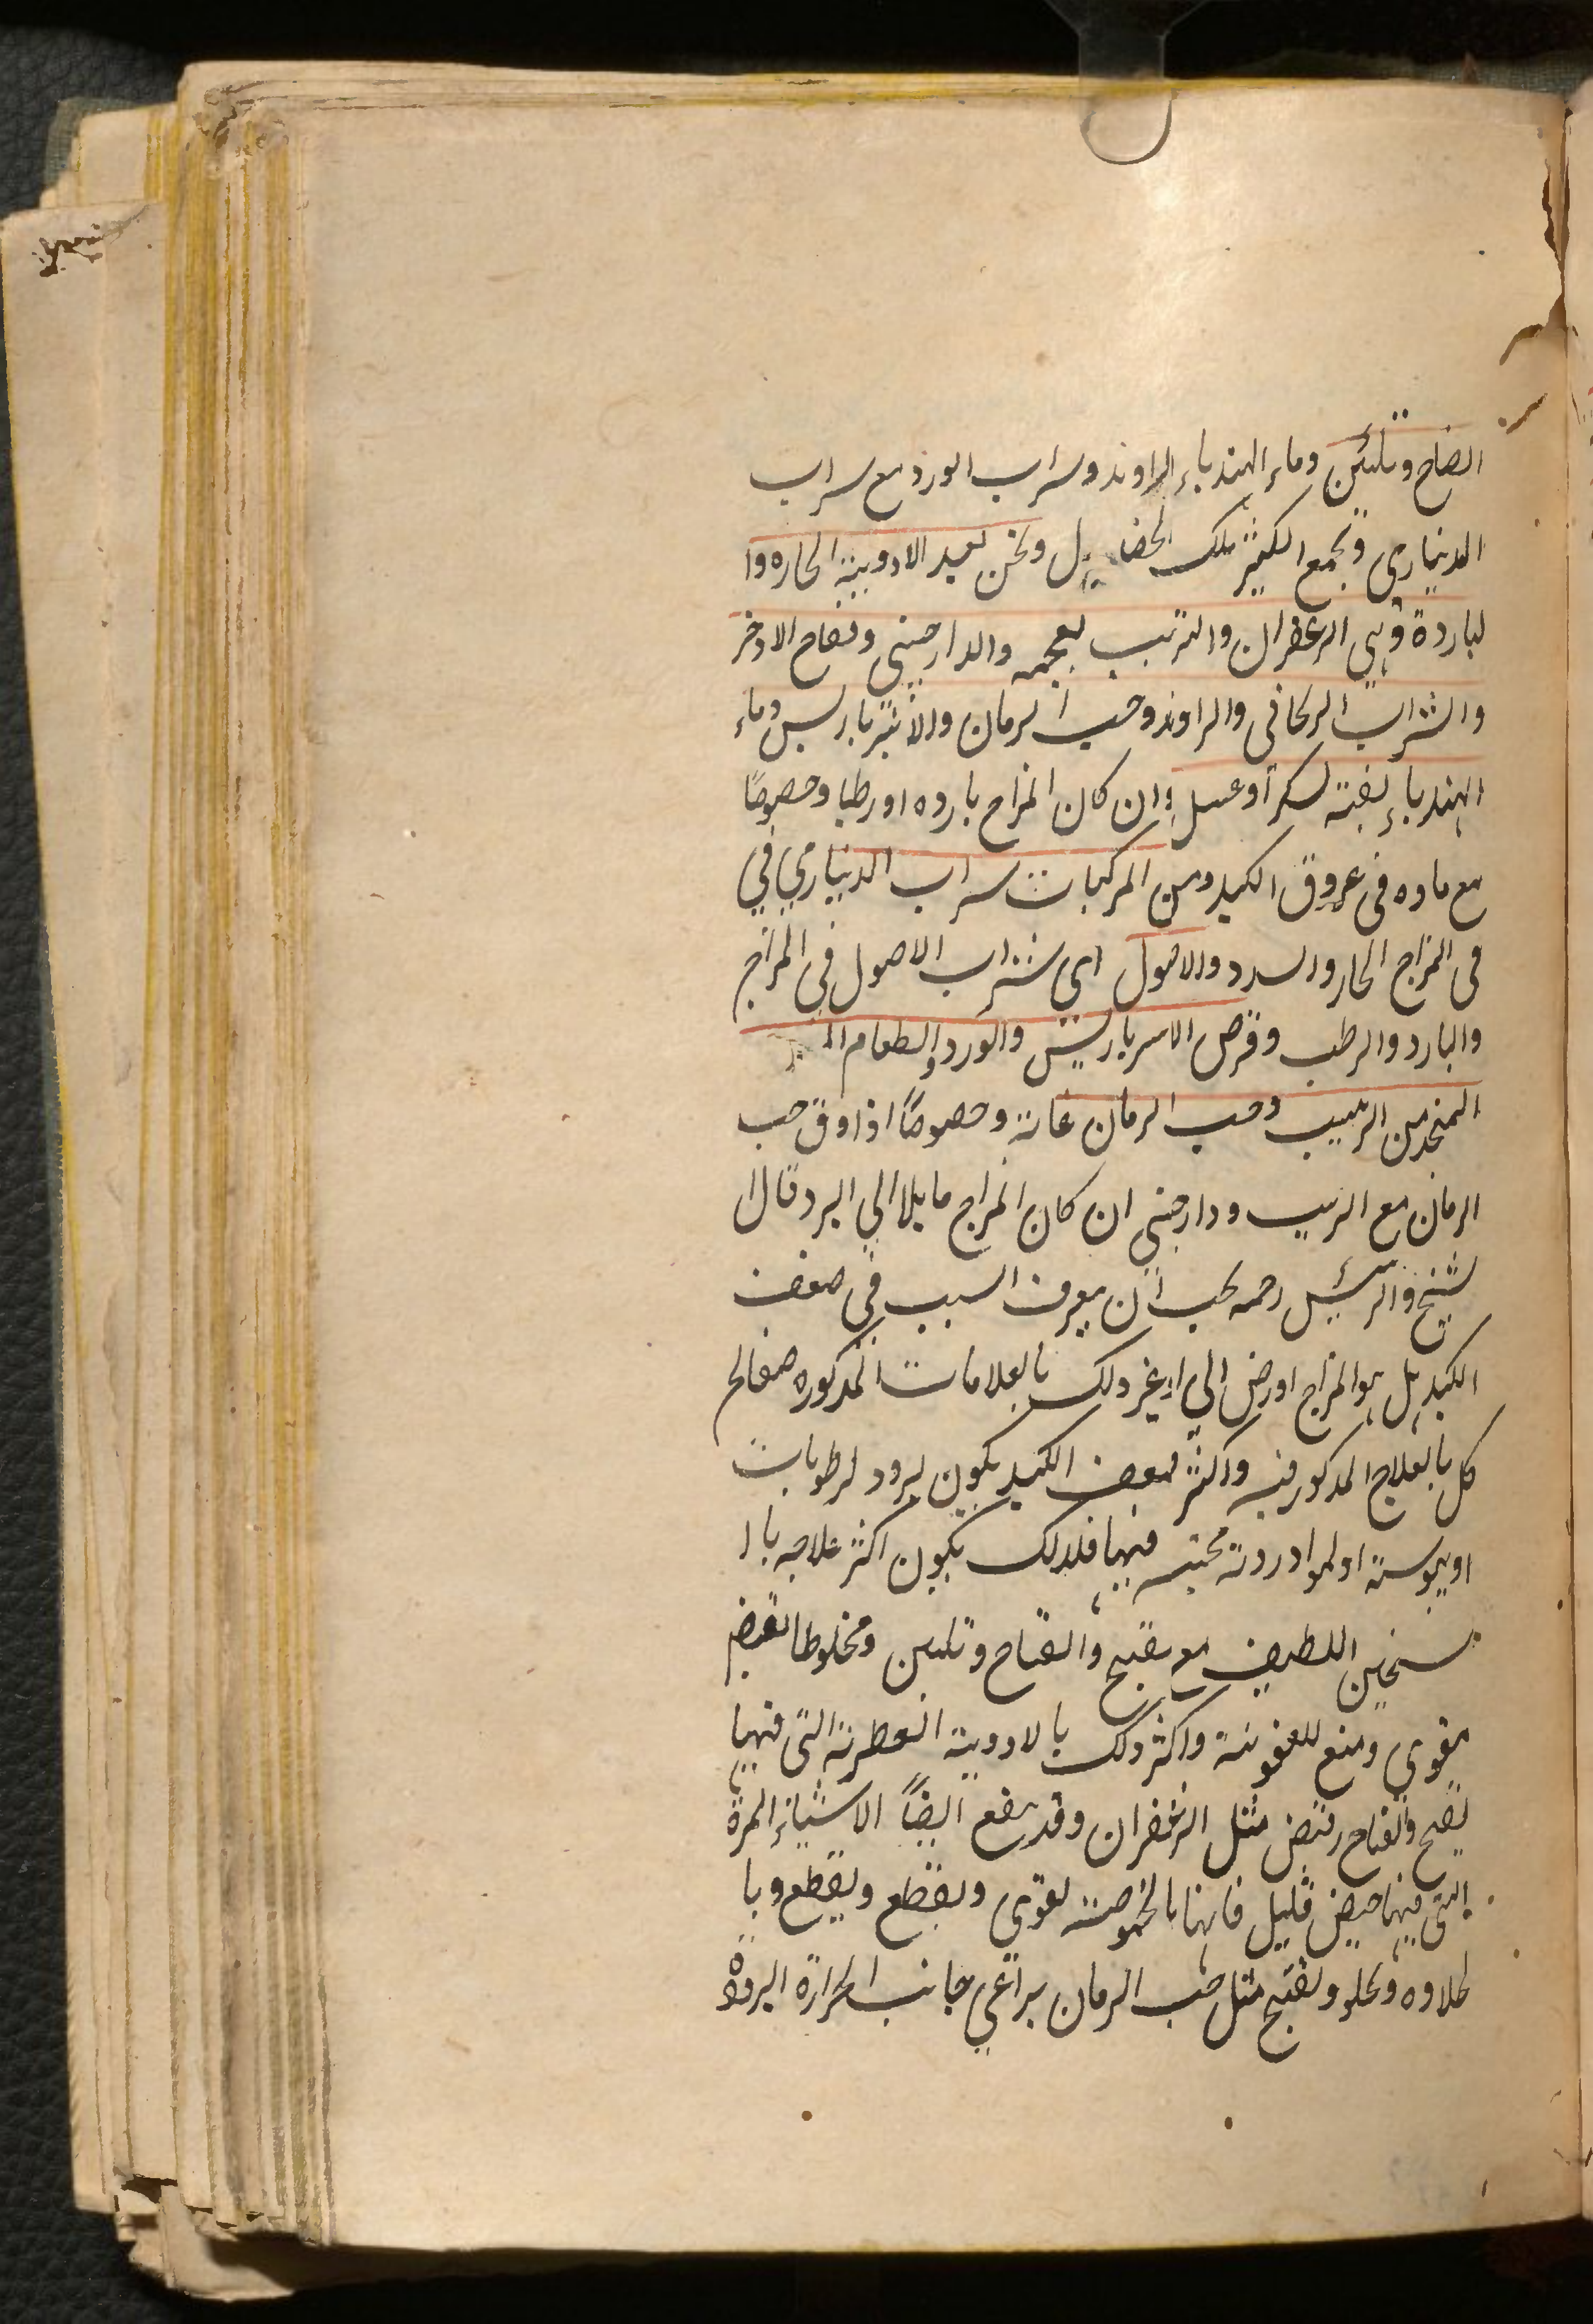 انضاح وتلئين وماء الهندباء الراوند وشراب الورد مع سراب
الديناري وتجمع الكثير تلك الخصايل ونحن نعيد الادوية الحاره وا
لباردة وهي الزعفران والترتيب بعجمه والدارصيني وفقاح الادخر
والشراب الريحاني والراوند وحب الرمان والانبرباريس وماء
الهندباء بغيته لسكر أو عسل وان كان المزاج بارده اورطبا وخصوصًا
مع ماده في عروق الكبد ومن المركبات سراب الديناري في
في المزاج الحار والسدد والاصول اي شراب الاصول في المزاج
والبارد والرطب وقرص الامبرباريس والورد والطعام
المتخد من الزبيب وحب الرمان غاية وخصوصًا اذا دق حب
الرمان مع الزبيب ودارصيني ان كان المزاج مايلا الي البرد قال ا
لشيخ والرئيس رحمه يجب أن يعرف السبب في ضعف
الكبد هل هوا لمزاج اورض الي او غير دلك بالعلامات المدكوره فيعالج
كل بالعلاج المدكور فيه واكثر ضعف الكبد يكون لبرود لرطوبات
او يبوسة او لمواد ردية محتبسه فيها فلدلك يكون اكثر علاجه با ا
تسخين اللطيف مع تفتيح وانضاح وتليين ومخلوطا بقبض
مقوي ومنع للعفونة واكثر دلك بالادوية العطرية التي فيها
تفتيح وانضاح وقبض مثل الزعفران وقد ينفع ايضًا الاشياء المرة
التي فيها قبض قليل فانها بالحموضة تقوي وتقطع وتقطع وبا
لحلاوه وتجلو وتفتح مثل حب الرمان يراعي جانب الحرارة البرودة